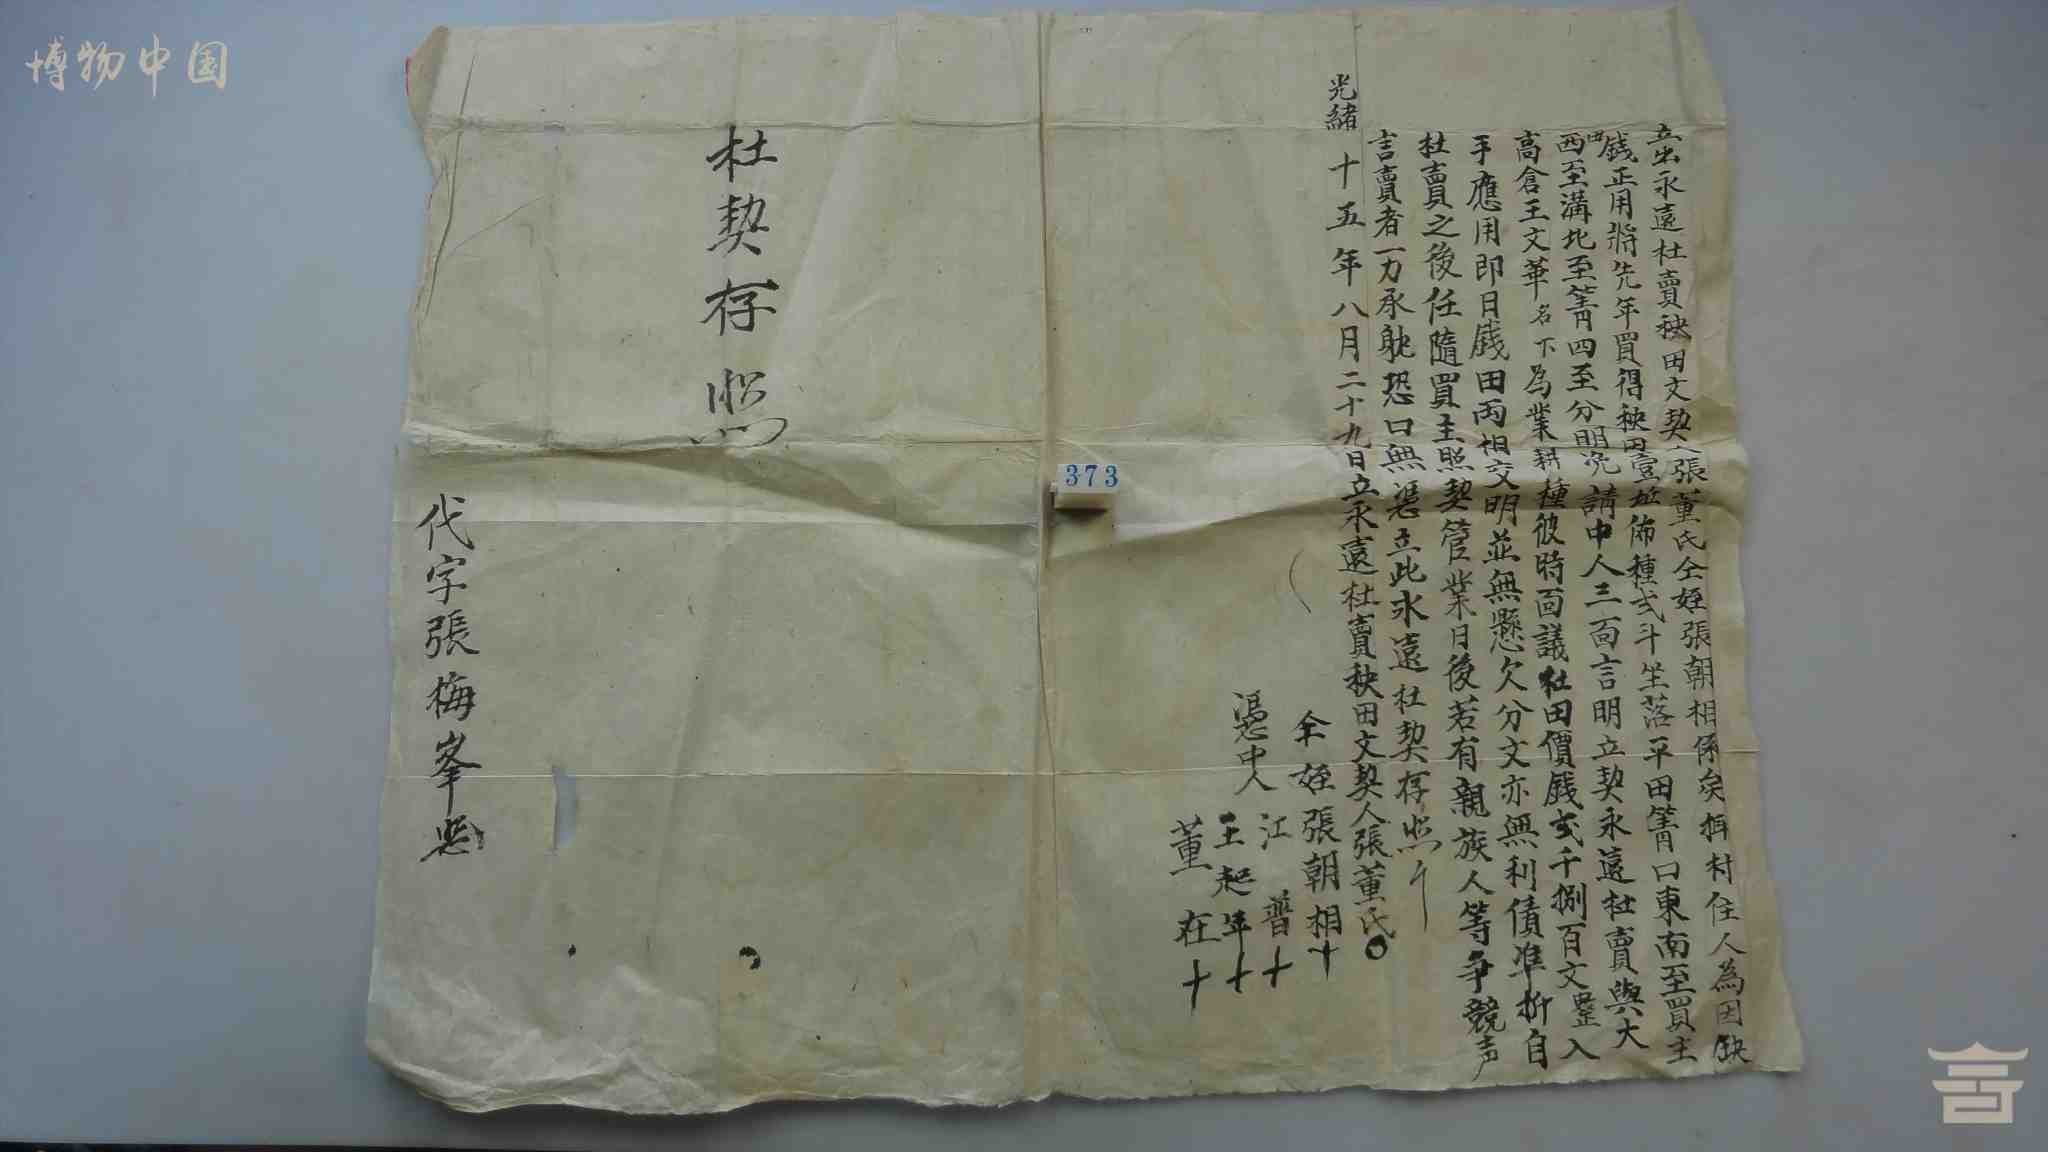 博物中国
立出永遠杜賣秧田文契人張董氏仝姪張朝相係矣㧳村住人為因缺
錢正用將先年買得秧田壹坵佈種弍斗坐落平田箐口東南至買主
田
西至溝北至箐四至分明凂請中人三面言明立契永遠杜賣與大
高倉王文華名下為業耕種彼時面議杜田價錢弍千捌百文整入
手應用即日錢田両相交明並無懸欠分文亦無利債準折自
杜賣之後任隨買主照契管業日後若有親族人等争競声
言賣者一力承躭恐口無憑立此永遠杜契存照
光緒十五年八月二十九日立永遠杜賣秧田文契人張董氏〇
仝姪張朝相十
憑中人
江普十
王起年十
董在十
373
杜契存照
代字張梅峯